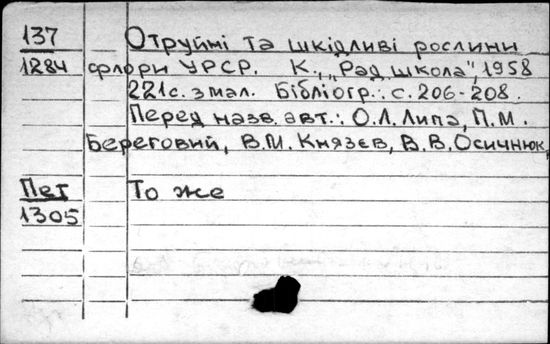 137 Отруйні та шкідливі рослини
1284 флори УРСР. К., „Рад школа", 1958
221с. з мал. Бібліогр.: с. 206-208.
Перед назв. авт.: О.Л. Липа, П.М.
Береговий, В.М. Князєв, В.В. Осичнюк,
Пет То же
1305